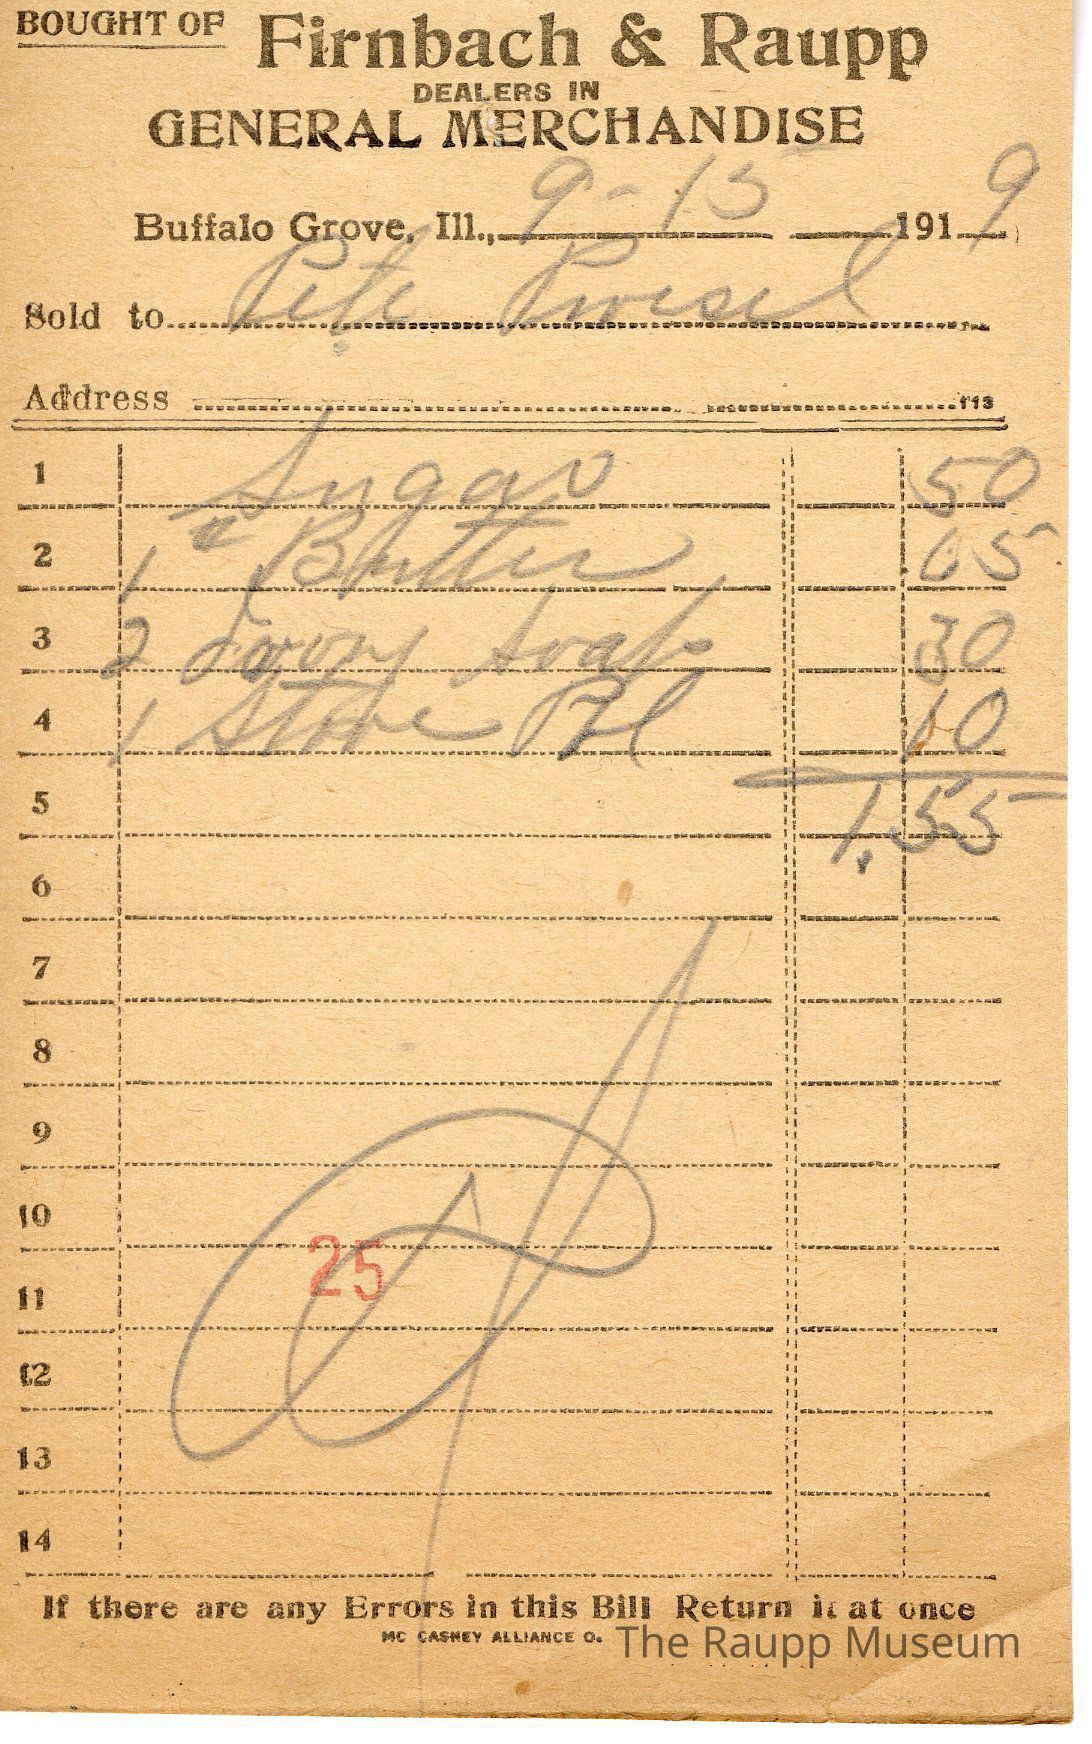 BOUGHT OF Firnbach & Raupp
DEALERS IN
GENERAL MERCHANDISE
Buffalo Grove, Ill., 9-15 1919
Sold to Pete
Address 113
1 Sugar 50
2 1 " Butter 65
3 2 Ivory Soap 30
4 1 Stove Pol 10
5 1.55
6
7
8
9
10
25
11
12
13
14
If there are any Errors in this Bill Return it at once
MC CASKEY ALLIANCE O.
The Raupp Museum